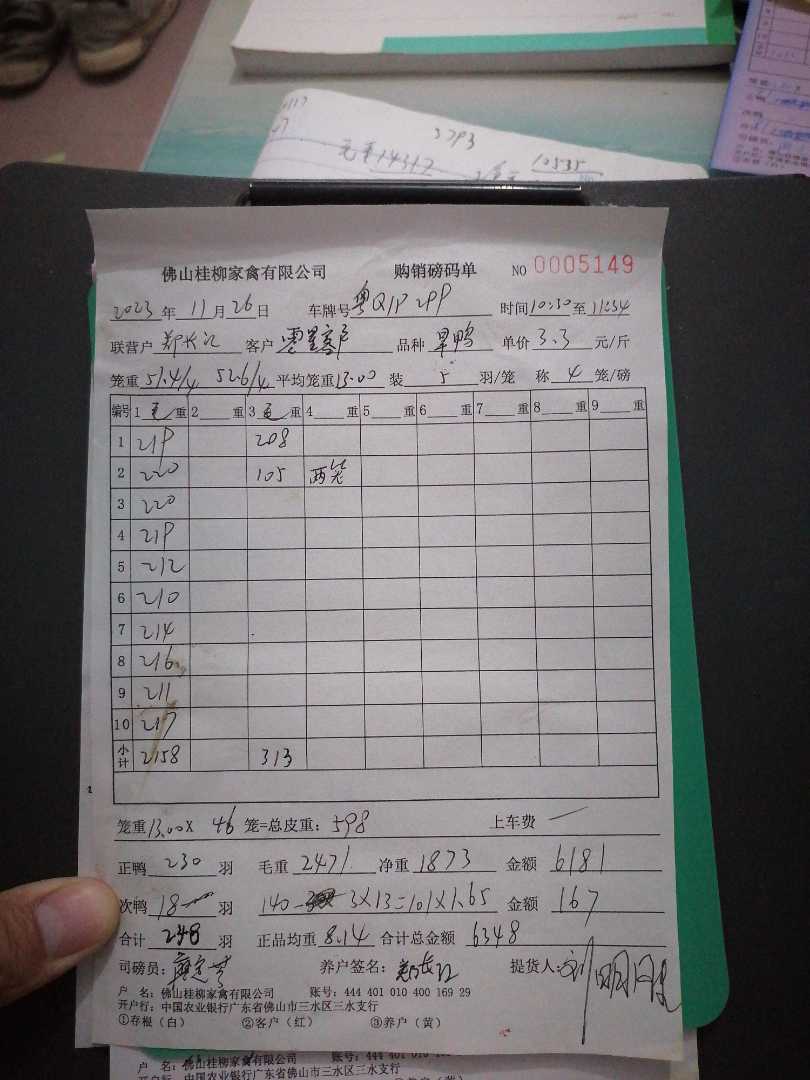 3793
毛重14317
10535
佛山桂柳家禽有限公司 购销磅码单 NO 0005149
2023 年 11 月 26 日 车牌号 粤Q1P299 时间 10:30 至 11:54
联营户 郑长江 客户 零星客户 品种 旱鸭 单价 3.3 元/斤
笼重 51.4/4 52.6/4 平均笼重 13.00 装 5 羽/笼 称 4 笼/磅
编号 1 毛 重 2 重 3 毛 重 4 重 5 重 6 重 7 重 8 重 9 重
1 219 208
2 220 105 两笼
3 220
4 219
5 212
6 210
7 214
8 216
9 211
10 217
小计 2158 313
笼重 13.00 X 46 笼=总皮重: 598 上车费 一
正鸭 230 羽 毛重 2471 净重 1873 金额 6181
次鸭 18 羽 140 - 3X13=101X1.65 金额 167
合计 248 羽 正品均重 8.14 合计总金额 6348
司磅员: 养户签名: 郑长江 提货人: 刘明
户 名: 佛山桂柳家禽有限公司 账号: 444 401 010 400 169 29
开户行: 中国农业银行广东省佛山市三水区三水支行
①存根（白） ②客户（红） ③养户（黄）
户 名: 佛山桂柳家禽有限公司 账号: 444 401 010
开户行: 中国农业银行广东省佛山市三水区三水支行